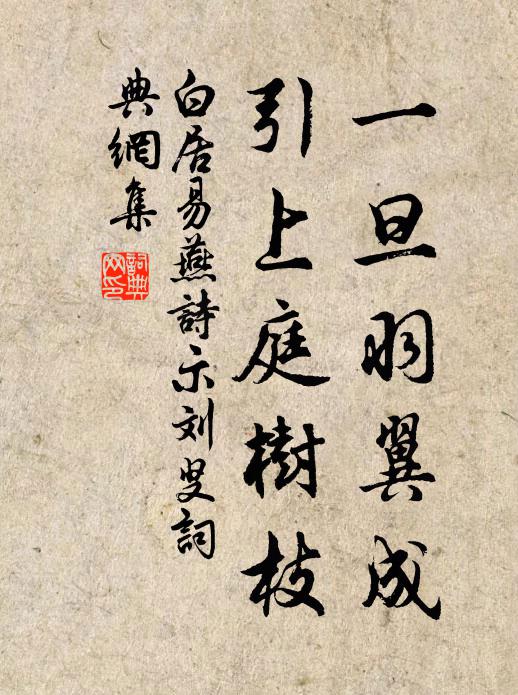 一旦羽翼成
引上庭樹枝
白居易燕詩示刘叟詞
典網集
詞典
网印